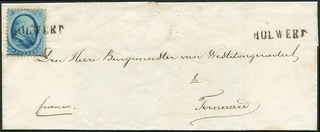 HOLWERD HOLWERD
Den Heere Burgemeester van Westdongeradeel
te
franco. Ternaard